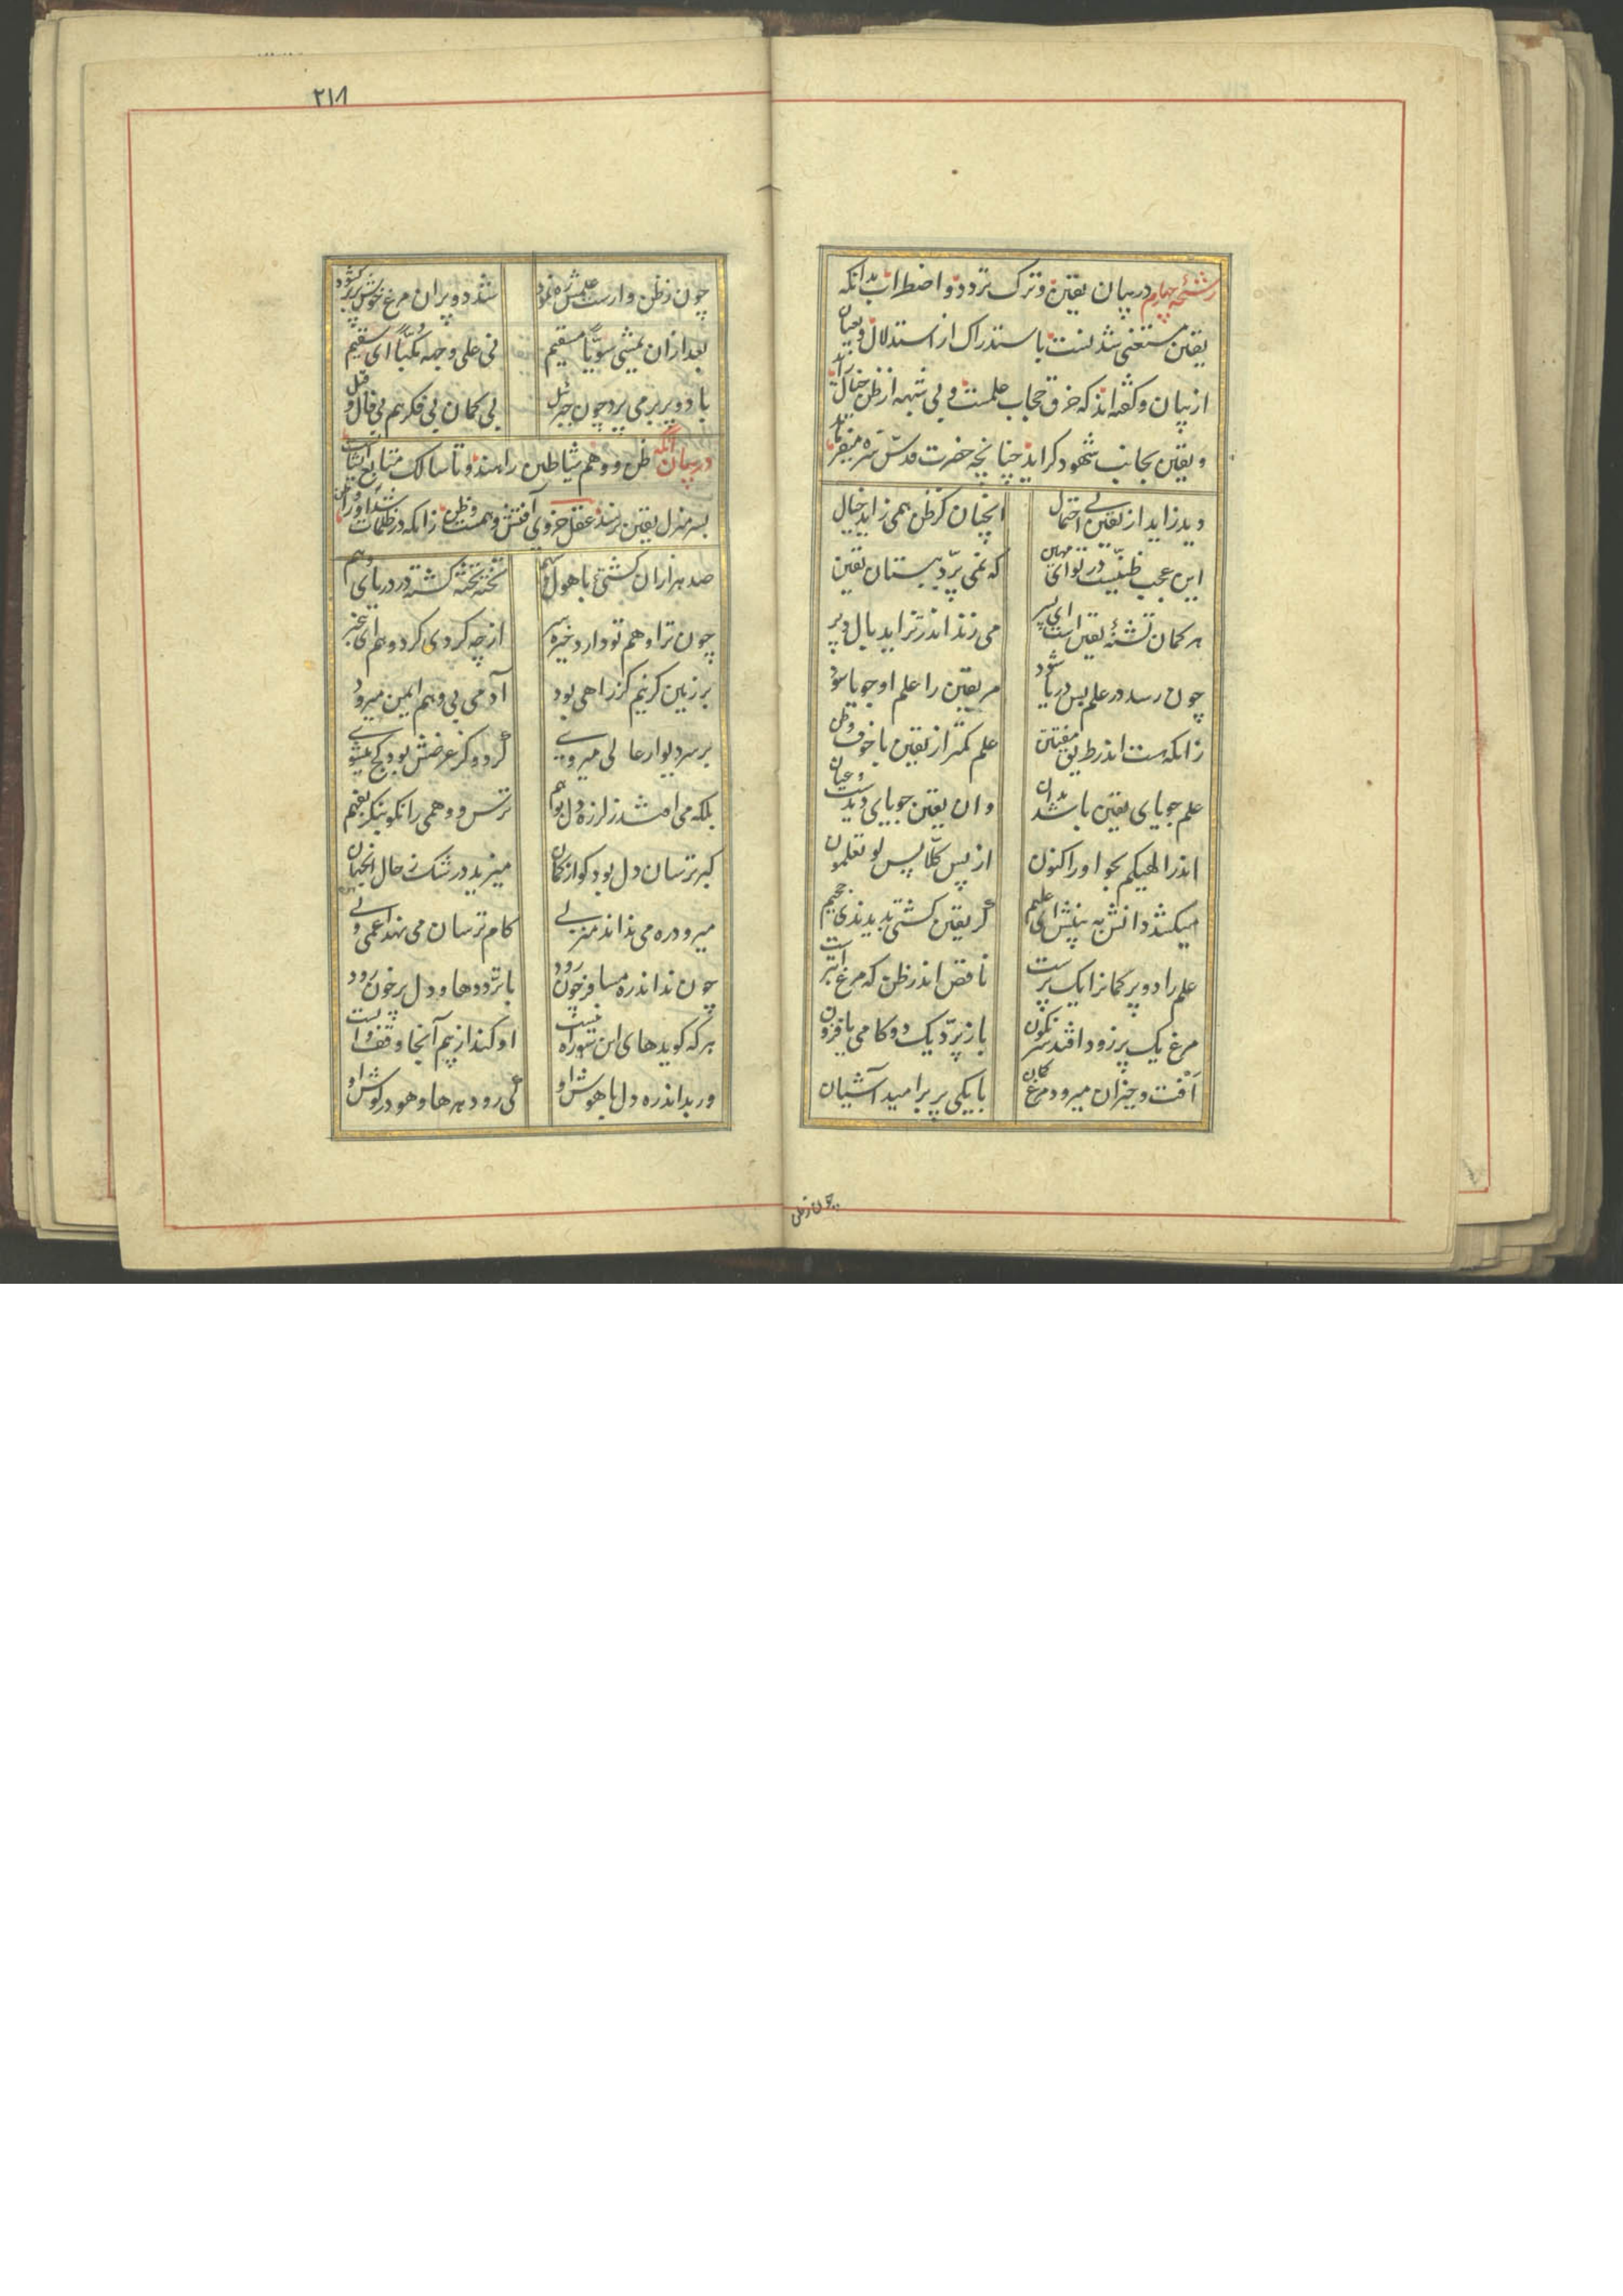 رشحهٔ چهارم در بیان یقین و ترک تردد و اضطراب بدانکه
یقین مستغنی شدنست باستدراک از استدلال و بعیان
از بیان و گفته‌اند که خرق حجاب علمست و بی شبهه از ظن خیال زاید
و یقین بجانب شهود گراید چنانچه حضرت قدس سره میفرماید
دید زاید از یقین بی احتمال آنچنان کز ظن همی زاید خیال
این عجب ظنیست در تو ای مهین که نمی پرد ببستان یقین
هر گمان تشنهٔ یقین است ای پسر می زند اندر تزاید بال و پر
چون رسد در علم پس دریا شود مر یقین را علم او جویا شود
زانکه هست اندر طریق مفتتن علم کمتر از یقین با خوف و ظن
علم جویای یقین باشد بدان وان یقین جویای دیدست و عیان
اندر الهیکم بجو او را کنون از پس کلا پس لو تعلمون
میکشد دانش به بینش ای علیم گر یقین گشتی بدیدندی جحیم
علم را دو پر گمانرا یک پرست ناقص اندر ظن که مرغ ابترست
مرغ یک پر زود افتد سرنگون باز پرد یک دو گامی یا فزون
افت و خیزان میرود مرغ گمان با یکی پر بر امید آشیان
چون ز ظن
۲۱۸
چون ز ظن وارست علمش ره نمود شد دو پر آن مرغ خوش پر برگشود
بعد ازان یمشی سویا مستقیم نی علی وجهه مکبا ای سقیم
با دو پر بر می پرد چون جبرئیل بی گمان بی فکر هم بی قال و قیل
در بیان آنکه ظن و وهم شیاطین راهند و تا سالک متابع ایشانست
بسر منزل یقین نرسد عقل جزوی آفتش وهمست و ظن زانکه در ظلمات شد او را وطن
صد هزاران کشتی با هول و سهم تخته تخته گشته در دریای وهم
چون ترا وهم تو دارد خیره سر از چه گردی گرد وهم ای
بر زمین گر نیم گز راهی بود آدمی بی وهم ایمن میرود
بر سر دیوار عالی میروی گر دو گز عرضش بود کج میشوی
بلکه می افتد ز لرزه دل بوهم ترس و وهمی را نکو بنگر بفهم
گبر ترسان دل بود کو از گمان میزید در شک ز حال آنجهان
میرود ره می نداند منزلی گام ترسان می نهد اعمی دلی
چون نداند ره مسافر چون رود با ترددها و دل پر خون رود
هر که گوید های این سو راه نیست او کند از بیم آنجا وقف و ایست
ور بداند ره دل باهوش او کی رود هر ها و هو در گوش او